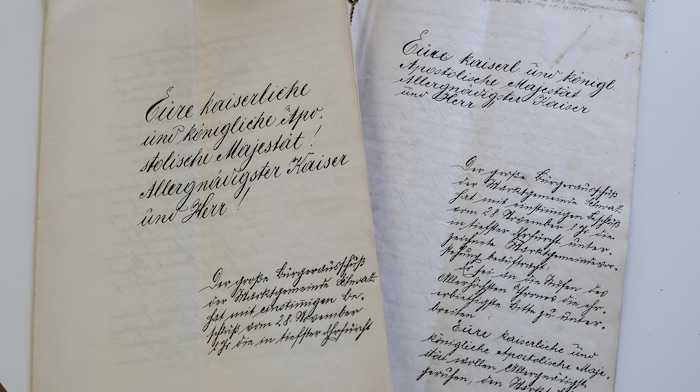 Eure kaiserliche
und königliche Apo-
stolische Majestät!
Allergnädigster Kaiser
und Herr!
Der große Bürgerausschuß
der Marktgemeinde Schwaz
hat mit einstimmigen Be-
schluß vom 28. November
l. Js. die in tiefster Ehrfurcht
Eure kaiserl und königl.
Apostolische Majestät
Allergnädigster Kaiser
und Herr
Der große Bürgerausschuß
der Marktgemeinde Schwaz
hat mit einstimmigen Beschluß
vom 28 November l Js die
in tiefster Ehrfurcht unter-
zeichnete Marktgemeindevor-
stehung beauftragt
an die Stufen des
Allerhöchsten Thrones die ehr-
erbietigste Bitte zu unter-
breiten
Eure kaiserliche und
königliche Apostolische Maje-
stät wollen Allergnädigst
geruhen, den Markt